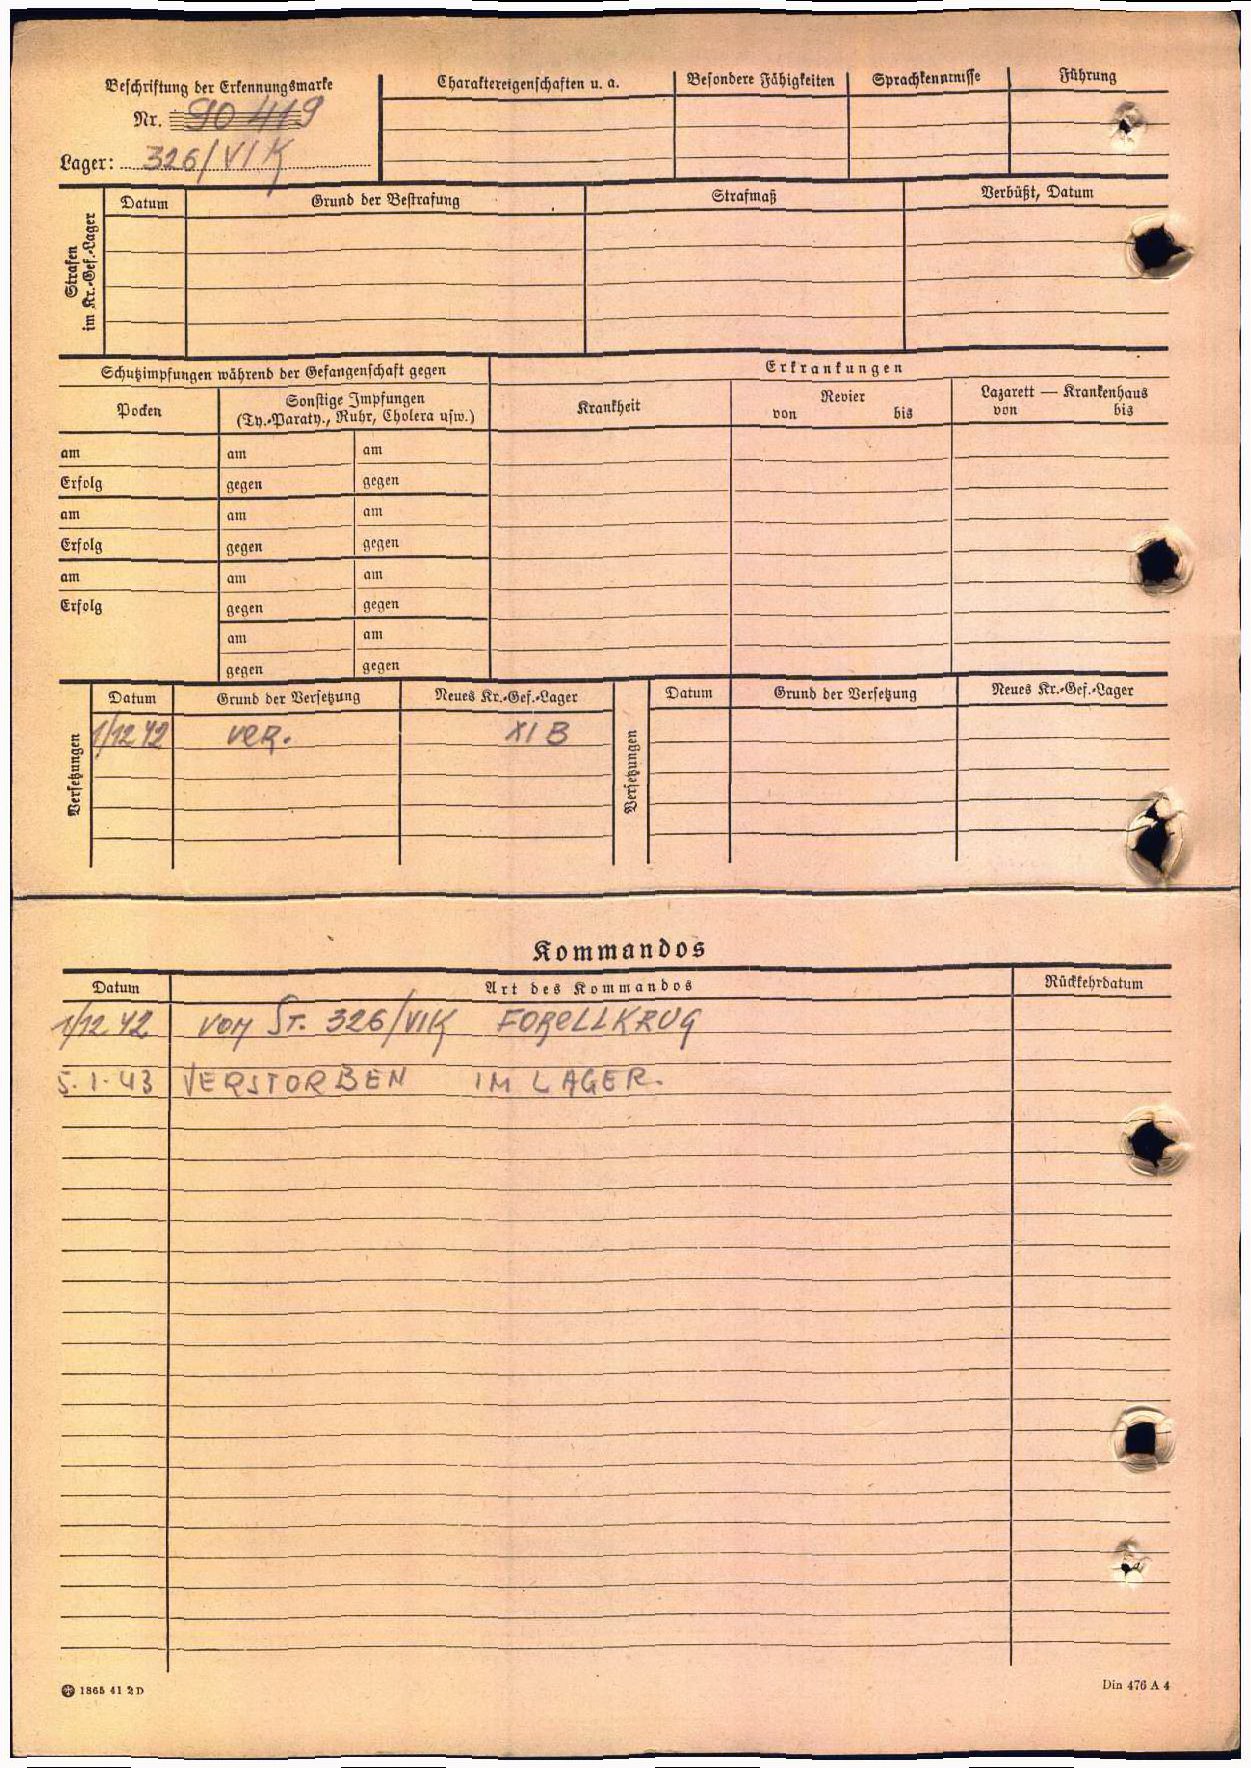 Beschriftung der Erkennungsmarke
Nr. 90419
Lager: 326/VI K
Charaktereigenschaften u. a.
Besondere Fähigkeiten
Sprachkenntnisse
Führung
Strafen im Kr.-Gef.-Lager
Datum
Grund der Bestrafung
Strafmaß
Verbüßt, Datum
Schutzimpfungen während der Gefangenschaft gegen
Erkrankungen
Pocken
Sonstige Impfungen
(Ty.-Paraty., Ruhr, Cholera usw.)
Krankheit
Revier
von bis
Lazarett — Krankenhaus
von bis
am am am
Erfolg gegen gegen
am am am
Erfolg gegen gegen
am am am
Erfolg gegen gegen
am am
gegen gegen
Versetzungen
Datum Grund der Versetzung Neues Kr.-Gef.-Lager
1/12 42 Ver. XI B
Versetzungen
Datum Grund der Versetzung Neues Kr.-Gef.-Lager
Kommandos
Datum Art des Kommandos Rückkehrdatum
1/12 42 VOM ST. 326/VI K FORELLKRUG
5.1.43 VERSTORBEN IM LAGER.
1865 41 2 D
Din 476 A 4